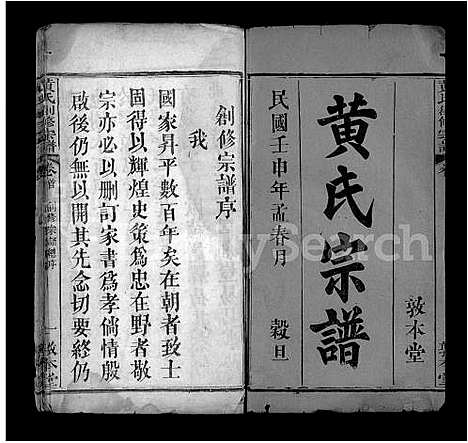 敦本堂
黃氏宗譜
民國壬申年孟春月 穀旦
創修宗譜序
我
國家昇平數百年矣在朝者致士
固得以輝煌史策為忠在野者敬
宗亦必以刪訂家書為孝倘情殷
啟後仍無以開其先念切要終仍
黃氏創修宗譜 卷首 創修宗譜序 一 敦本堂
FamilySearch